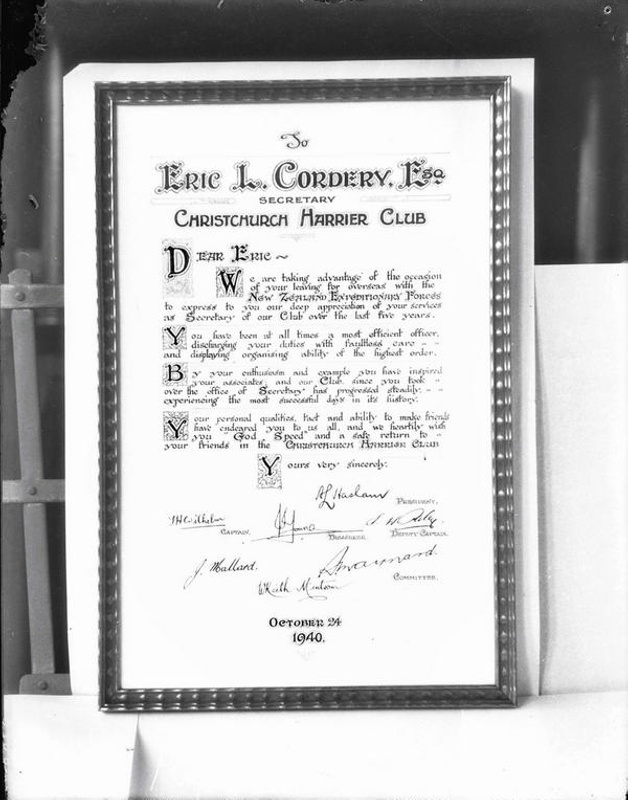 To
Eric L. Cordery, Esq
Secretary
Christchurch Harrier Club
Dear Eric ~
We are taking advantage of the occasion
of your leaving for overseas with the
New Zealand Expeditionary Forces
to express to you our deep appreciation of your services
as Secretary of our Club over the last five years.
You have been at all times a most efficient officer,
discharging your duties with faultless care - -
and displaying organising ability of the highest order.
By your enthusiasm and example you have inspired
your associates; and our Club since you took -
over the office of Secretary has progressed steadily - -
experiencing the most successful days in its history.
Your personal qualities, tact and ability to make friends
have endeared you to us all, and we heartily wish
you "God Speed" and a safe return to -
your friends in the Christchurch Harrier Club
Yours very sincerely:
A L Haslam
President.
Captain. J Young Deputy Captain.
J. Mallard.
Committee.
Keith
October 24
1940.